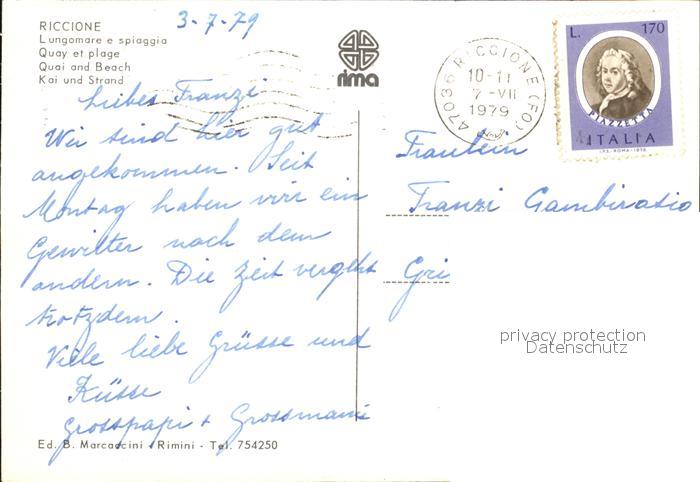 3-7-79
RICCIONE
Lungomare e spiaggia
Quay et plage
Quai and Beach
Kai und Strand
rima
47036 RICCIONE (FO)
10-11
7-VII
1979
L. 170
PIAZZETTA
ITALIA
I.P.S.-ROMA-1976
Liebes Franzi
Wir sind hier gut
angekommen. Seit
Montag haben wir ein
Gewitter nach dem
andern. Die Zeit vergeht
trotzdem.
Viele liebe Grüsse und
Küsse
Grosspapi + Grossmami
Fräulein
Franzi Gambirasio
Gri
privacy protection
Datenschutz
Ed. B. Marcaccini - Rimini - Tel. 754250